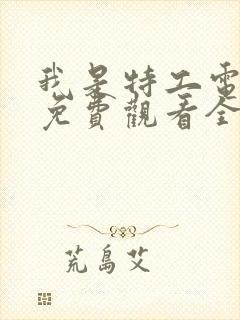 我是特工電
免費觀看全
荒島艾